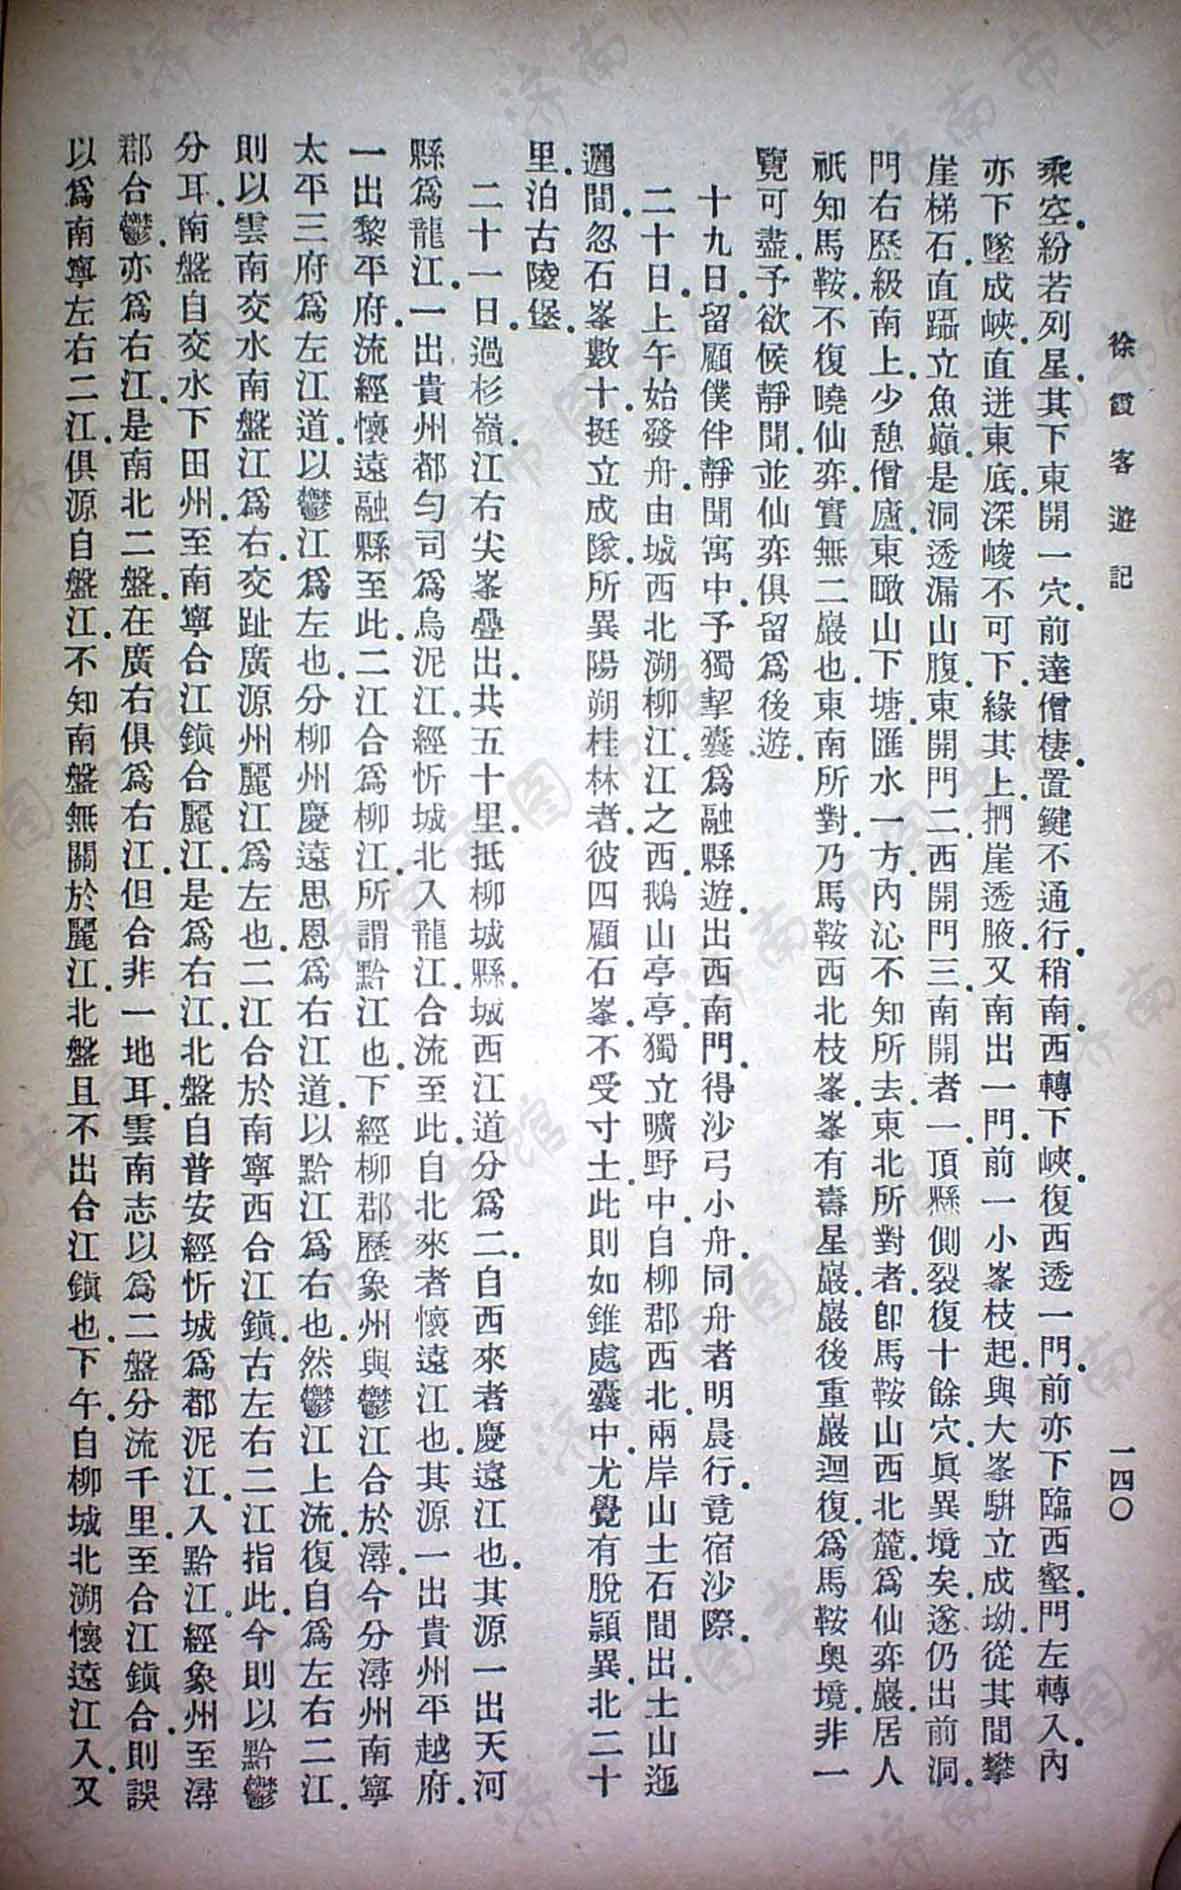 徐霞客遊記
一四〇
乘空.紛若列星.其下東開一穴.前達僧棲.置鍵不通行.稍南.西轉下峽.復西透一門.前亦下臨西壑.門左轉入內.
亦下墜成峽.直迸東底.深峻不可下.緣其上.捫崖透腋.又南出一門.前一小峯枝起.與大峯駢立成坳.從其間攀
崖梯石.直躡立魚巔.是洞透漏山腹.東開門二.西開門三.南開者一.頂縣側裂.復十餘穴.眞異境矣.遂仍出前洞.
門右歷級南上.少憩僧廬.東瞰山下塘.匯水一方.內沁不知所去.東北所對者.卽馬鞍山西北麓.爲仙弈巖.居人
祇知馬鞍.不復曉仙弈.實無二巖也.東南所對.乃馬鞍西北枝峯.峯有壽星巖.巖後重巖迴復.爲馬鞍奧境.非一
覽可盡.予欲候靜聞.並仙弈俱留爲後遊.
十九日.留顧僕伴靜聞寓中.予獨挈囊爲融縣遊.出西南門.得沙弓小舟.同舟者明晨行.竟宿沙際.
二十日.上午始發舟.由城西北溯柳江.江之西.鵝山亭亭.獨立曠野中.自柳郡西北.兩岸山土石間出.土山迤
邐間.忽石峯數十.挺立成隊.所異陽朔桂林者.彼四顧石峯.不受寸土.此則如錐處囊中.尤覺有脫穎異.北二十
里.泊古陵堡.
二十一日.過杉嶺.江右尖峯疊出.共五十里.抵柳城縣.城西江道分爲二.自西來者.慶遠江也.其源一出天河
縣爲龍江.一出貴州都勻司爲烏泥江.經忻城北入龍江.合流至此.自北來者懷遠江也.其源一出貴州平越府.
一出黎平府.流經懷遠融縣至此.二江合爲柳江.所謂黔江也.下經柳郡歷象州與鬱江合於潯.今分潯州南寧
太平三府爲左江道.以鬱江爲左也.分柳州慶遠思恩爲右江道.以黔江爲右也.然鬱江上流.復自爲左右二江.
則以雲南交水南盤江爲右.交趾廣源州麗江爲左也.二江合於南寧西合江鎭.古左右二江指此.今則以黔鬱
分耳.南盤自交水下田州.至南寧合江鎭合麗江.是爲右江.北盤自普安經忻城爲都泥江.入黔江.經象州至潯
郡合鬱.亦爲右江.是南北二盤.在廣右俱爲右江.但合非一地耳.雲南志以爲二盤分流千里.至合江鎭合.則誤
以爲南寧左右二江.俱源自盤江.不知南盤無關於麗江.北盤且不出合江鎭也.下午.自柳城北溯懷遠江入.又